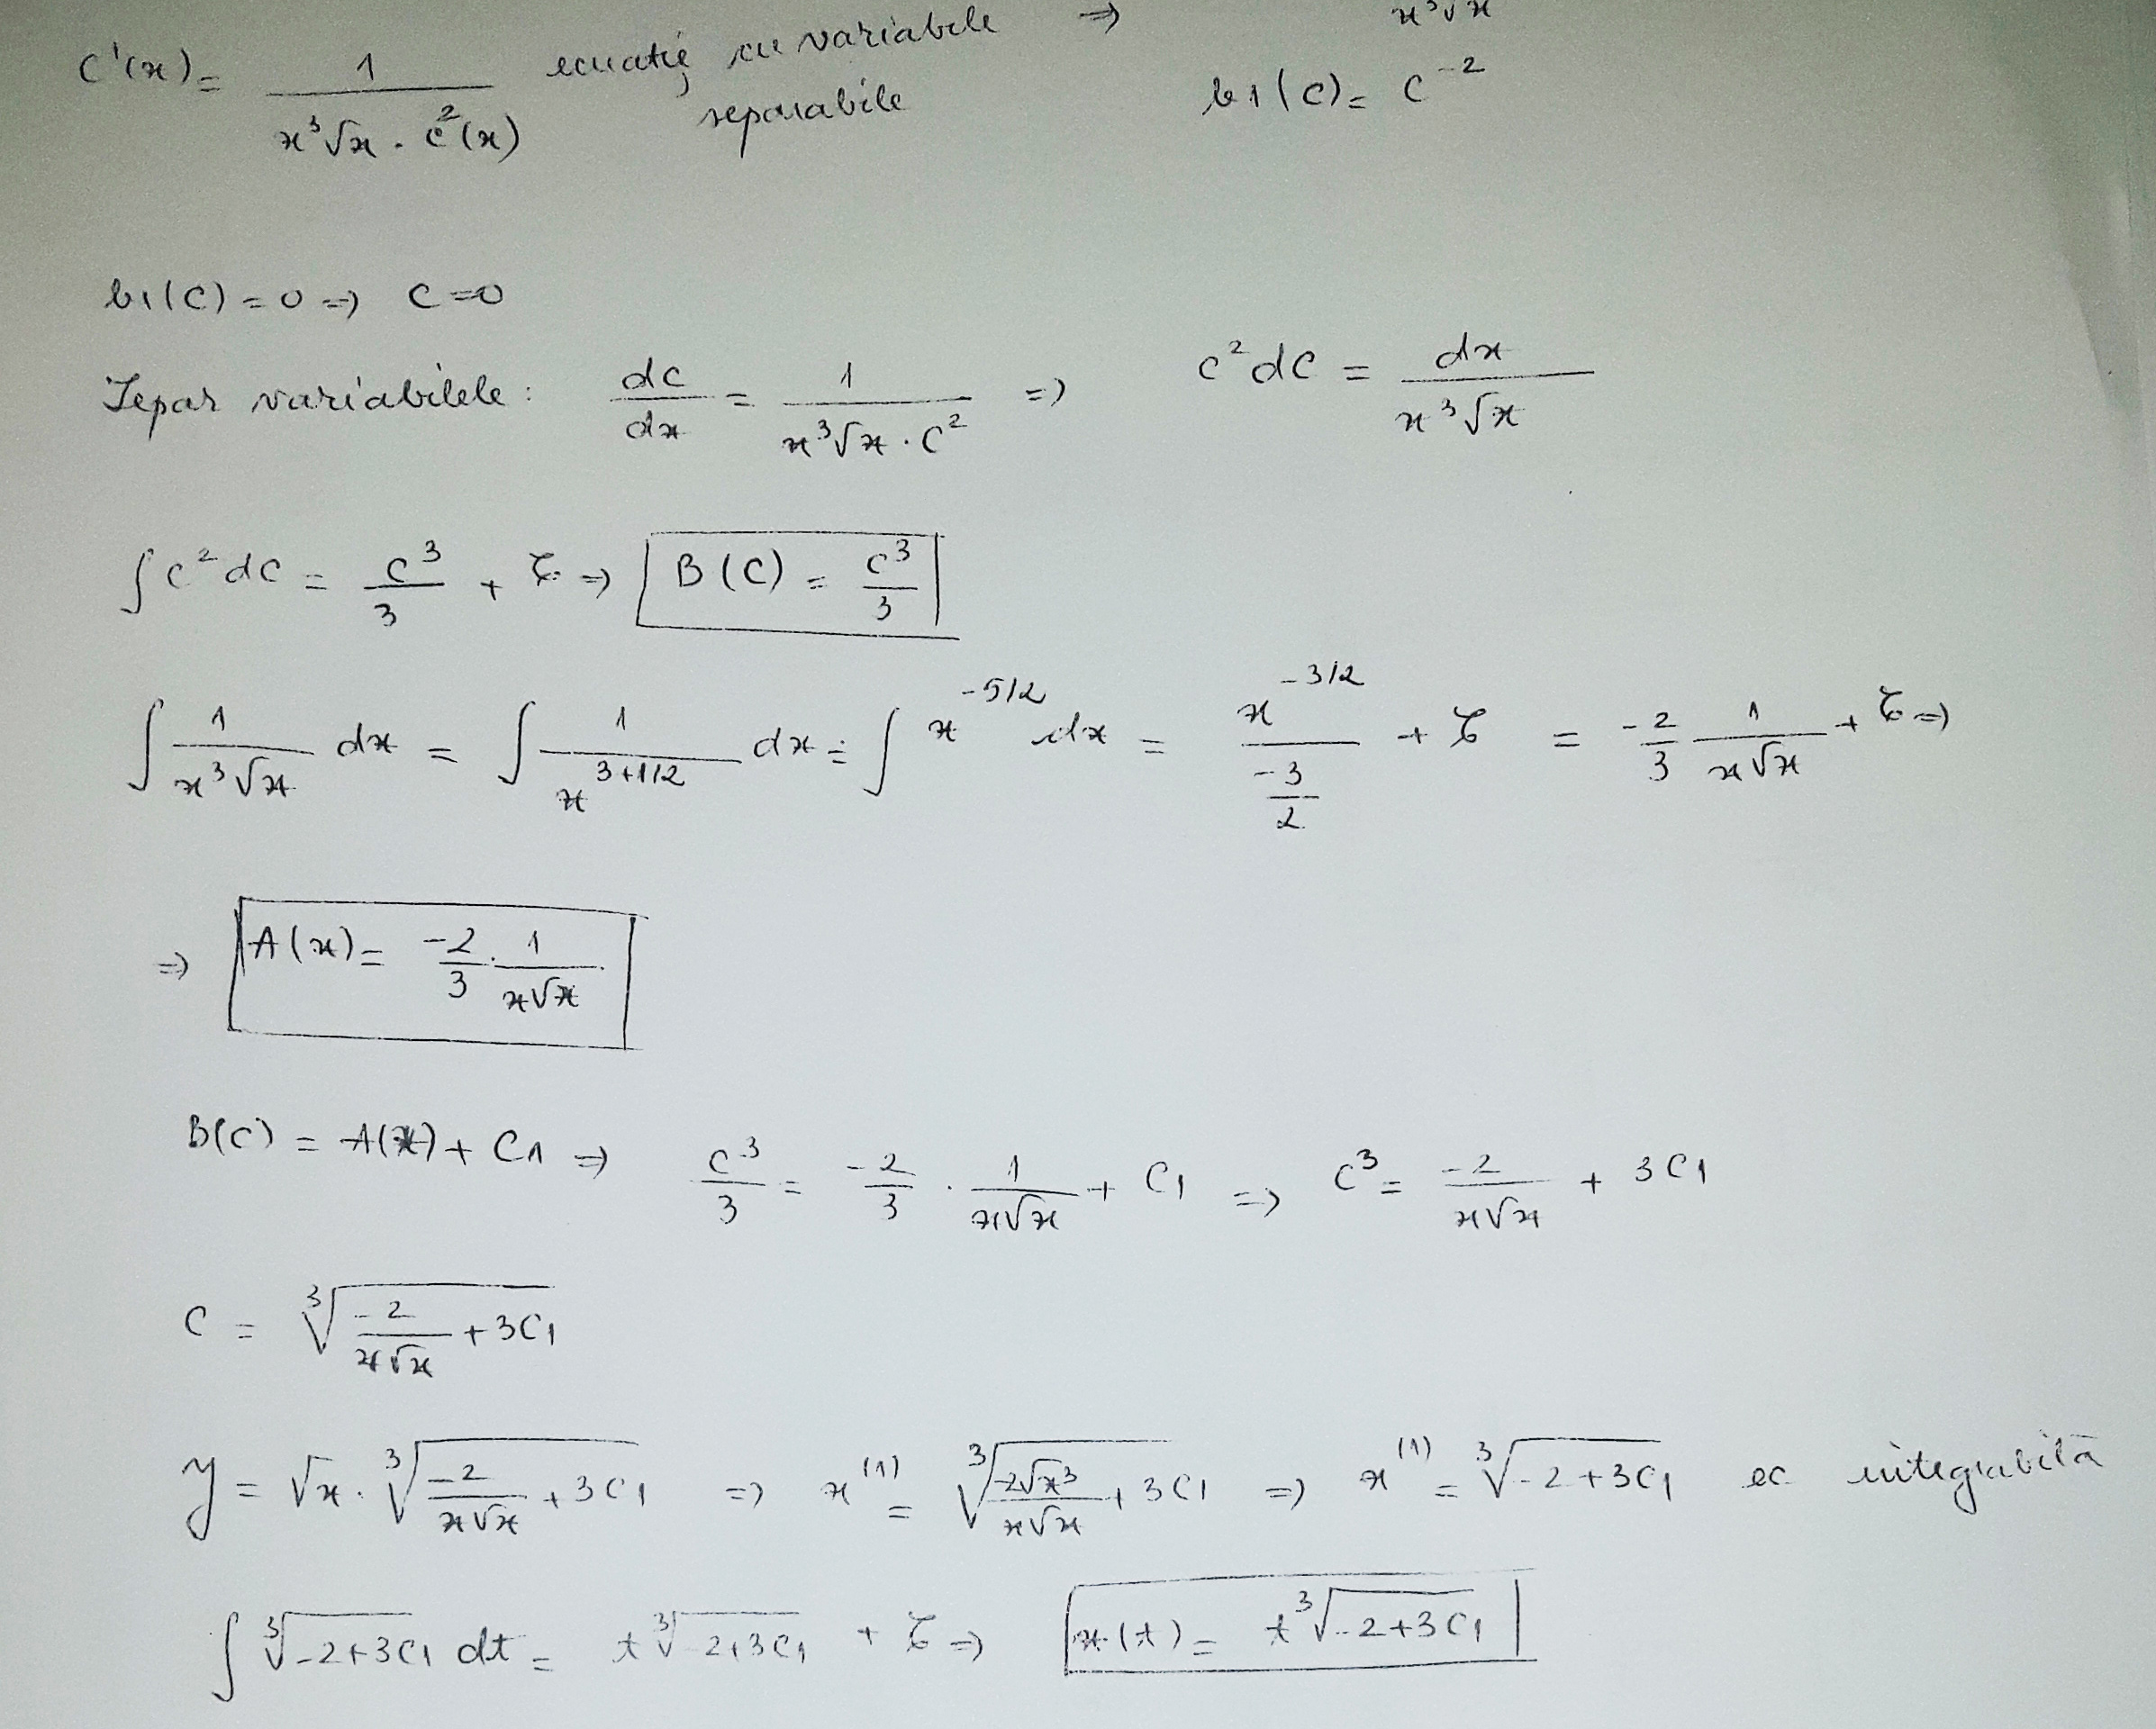 C'(x) = 1 / (x³√x · C²(x)) ecuație cu variabile separabile ⇒ x³√x
b1(C) = C⁻²
b1(C) = 0 ⇒ C = 0
Separ variabilele: dC/dx = 1 / (x³√x · C²) ⇒ C² dC = dx / (x³√x)
∫ C² dC = C³/3 + 𝒞 ⇒ B(C) = C³/3
∫ 1/(x³√x) dx = ∫ 1/x^(3+1/2) dx = ∫ x^(-5/2) dx = x^(-3/2) / (-3/2) + 𝒞 = -2/3 1/(x√x) + 𝒞 ⇒
⇒ A(x) = -2/3 · 1/(x√x)
B(C) = A(x) + C1 ⇒ C³/3 = -2/3 · 1/(x√x) + C1 ⇒ C³ = -2/(x√x) + 3C1
C = ∛(-2/(x√x) + 3C1)
y = √x · ∛(-2/(x√x) + 3C1) ⇒ x⁽¹⁾ = ∛(-2√x³/(x√x) + 3C1) ⇒ x⁽¹⁾ = ∛(-2+3C1) ec integrabilă
∫ ∛(-2+3C1) dt = t ∛(-2+3C1) + 𝒞 ⇒ x(t) = t ∛(-2+3C1)